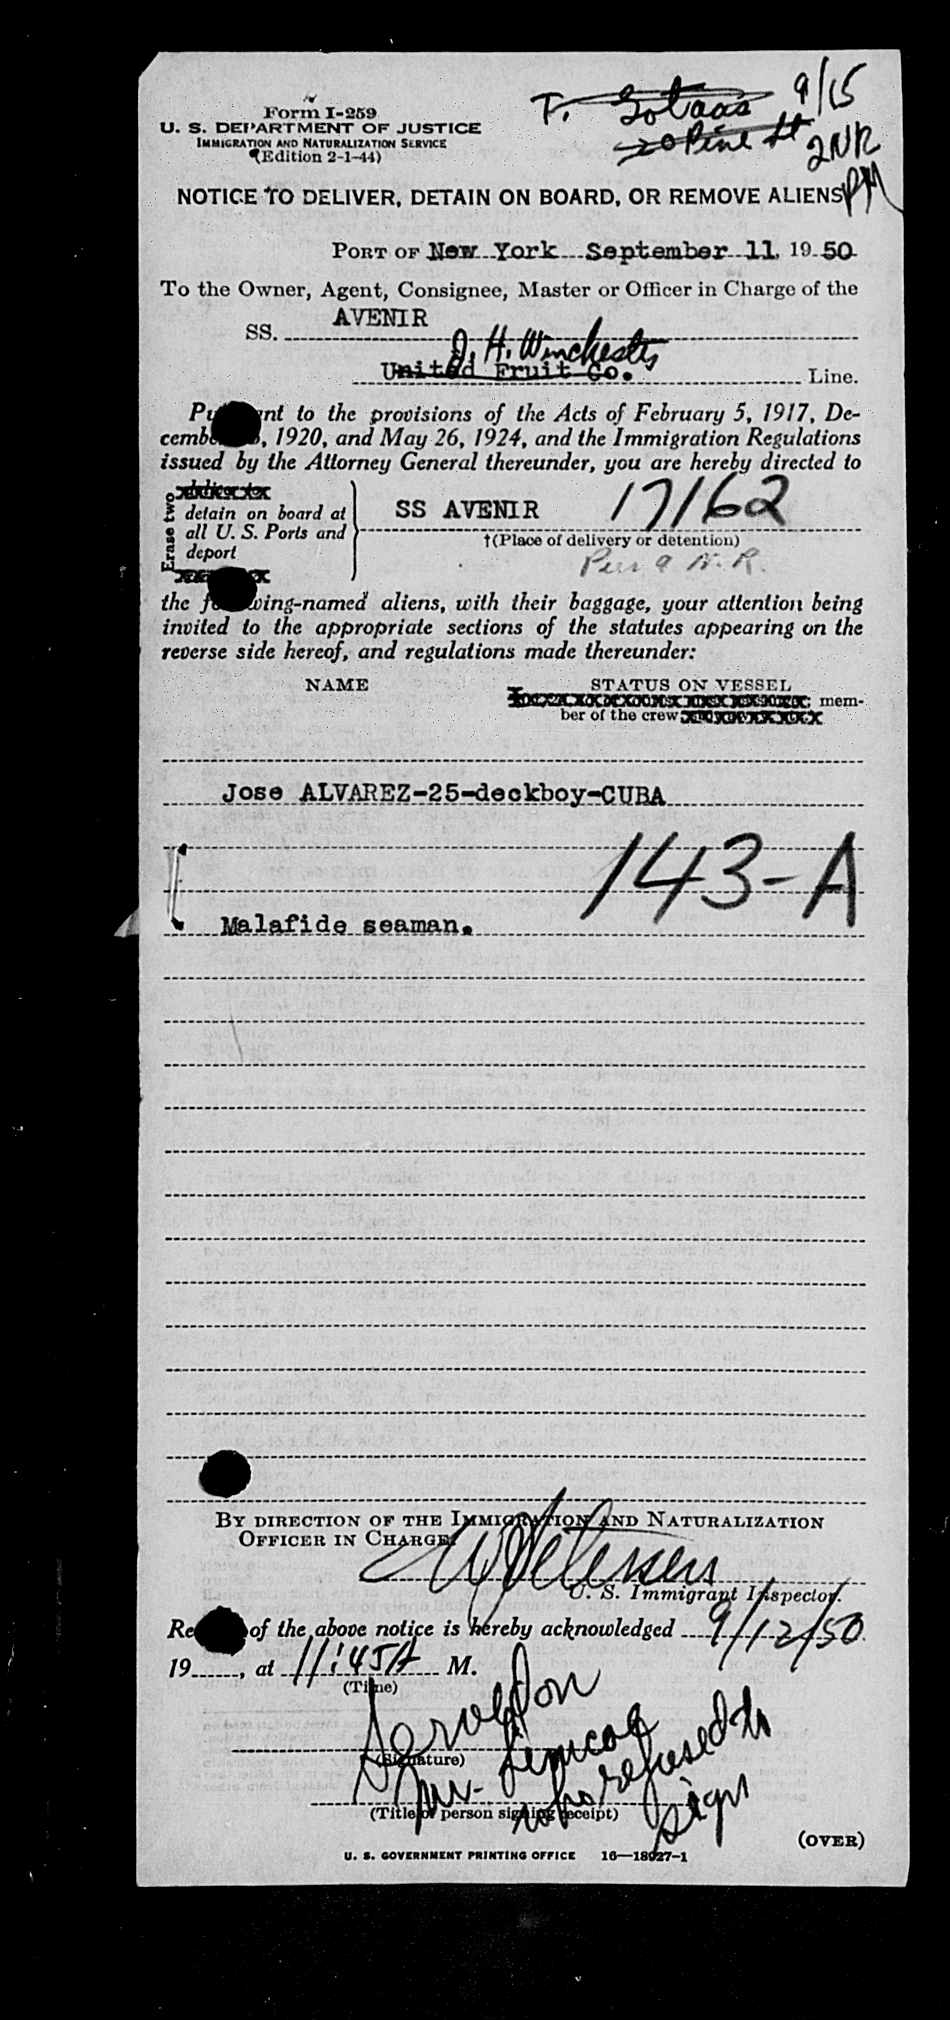 Form I-259
U. S. DEPARTMENT OF JUSTICE
IMMIGRATION AND NATURALIZATION SERVICE
(Edition 2-1-44)
T. Sotaas 9/15
20 Pine St 2NR
PM
NOTICE TO DELIVER, DETAIN ON BOARD, OR REMOVE ALIENS
PORT OF New York September 11, 1950
To the Owner, Agent, Consignee, Master or Officer in Charge of the
SS. AVENIR
J. H. Winchester
United Fruit Co. Line.
nt to the provisions of the Acts of February 5, 1917, De-
cemb , 1920, and May 26, 1924, and the Immigration Regulations
issued by the Attorney General thereunder, you are hereby directed to
Erase two
detain on board at
all U. S. Ports and
deport
SS AVENIR 17162
†(Place of delivery or detention)
Pier 9 N. R.
the f wing-named aliens, with their baggage, your attention being
invited to the appropriate sections of the statutes appearing on the
reverse side hereof, and regulations made thereunder:
NAME STATUS ON VESSEL
; mem-
ber of the crew
Jose ALVAREZ-25-deckboy-CUBA
143-A
Malafide seaman.
BY DIRECTION OF THE IMMIGRATION AND NATURALIZATION
OFFICER IN CHARGE
U. S. Immigrant Inspector.
Re of the above notice is hereby acknowledged 9/12/50
19......, at 11:45 A M.
(Time)
Served on
(Signature)
who refused to
sign
(Title of person signing receipt)
(OVER)
U. S. GOVERNMENT PRINTING OFFICE 16—18027-1